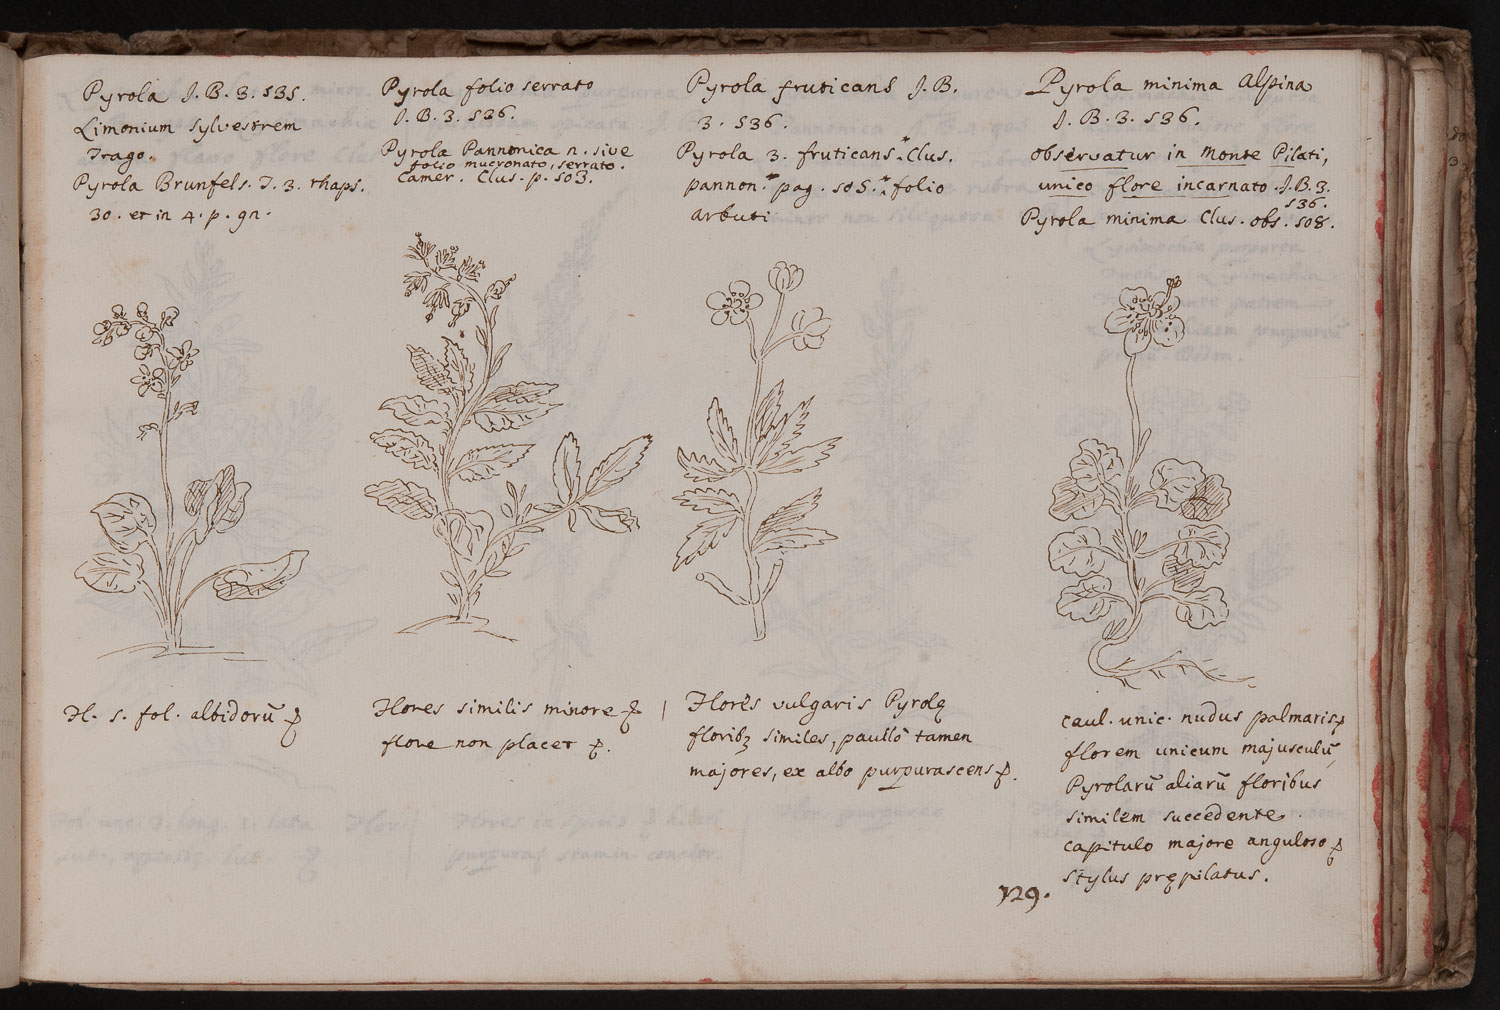 Pyrola J. B. 3. 535.
Limonium sylvestrem
Trago.
Pyrola Brunfels. T. 3. rhaps.
30. et in 4. p. 9n.
Pyrola folio serrato
J. B. 3. 536.
Pyrola Pannonica n. sive
folio mucronato, serrato.
Camer. Clus. p. 503.
Pyrola fruticans J. B.
3. 536.
Pyrola 3. fruticans Clus.
pannon. pag. 505. folio
arbuti
Pyrola minima Alpina
J. B. 3. 536.
observatur in Monte Pilati,
unico flore incarnato J. B. 3.
536.
Pyrola minima Clus. obs. 508.
Fl. s. fol. albidorū
Flores similis minore
flore non placet
Flores vulgaris Pyrolę
floribȝ similes, paullò tamen
majores, ex albo purpurascens
caul. unic. nudus palmaris
florem unicum majusculū,
Pyrolarū aliarū floribus
similem succedente
capitulo majore anguloso
stylus prępilatus.
129.